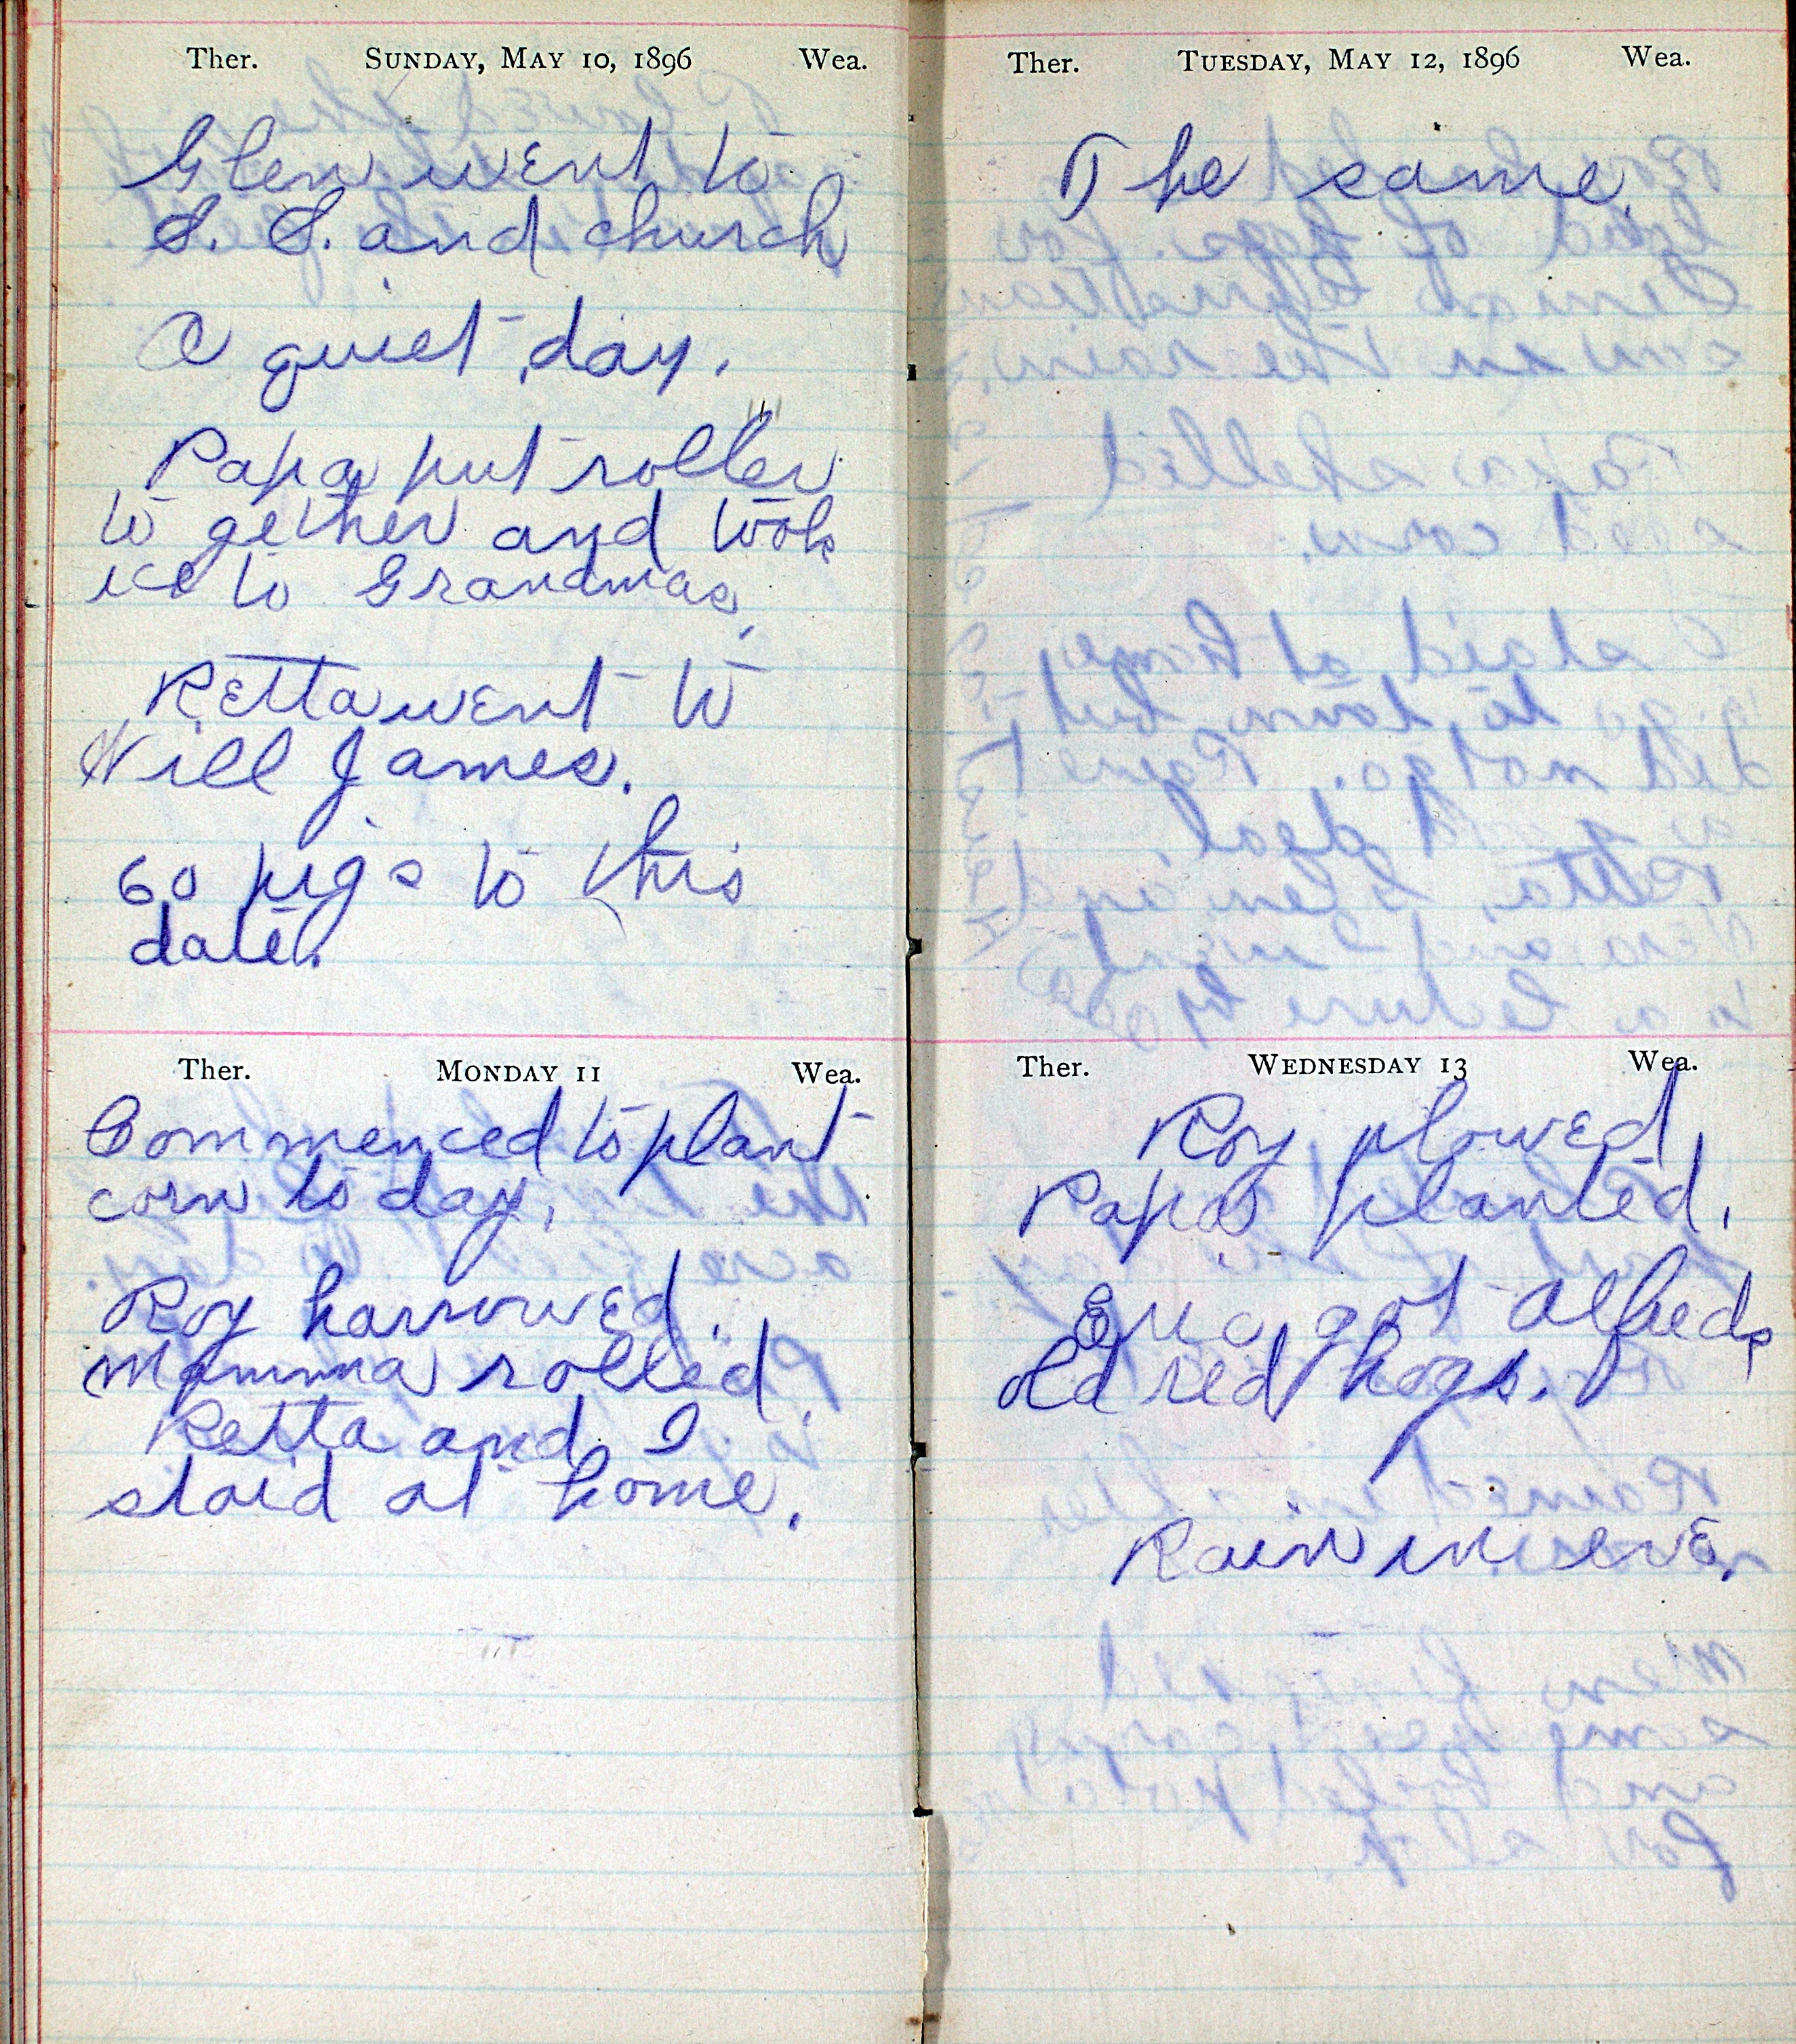 Ther. Sunday, May 10, 1896 Wea.
Glen went to
S. S. and church
A quiet day.
Papa put roller
to gether and took
ice to Grandmas,
Retta went to
Will James.
60 pigs to this
date.
Ther. Monday 11 Wea.
Commenced to plant
corn to day.
Roy harrowed.
Mamma rolled.
Retta and I
staid at home.
Ther. Tuesday, May 12, 1896 Wea.
The same.
Ther. Wednesday 13 Wea.
Roy plowed,
Papa planted.
got
old red hogs.
Rain in eve.